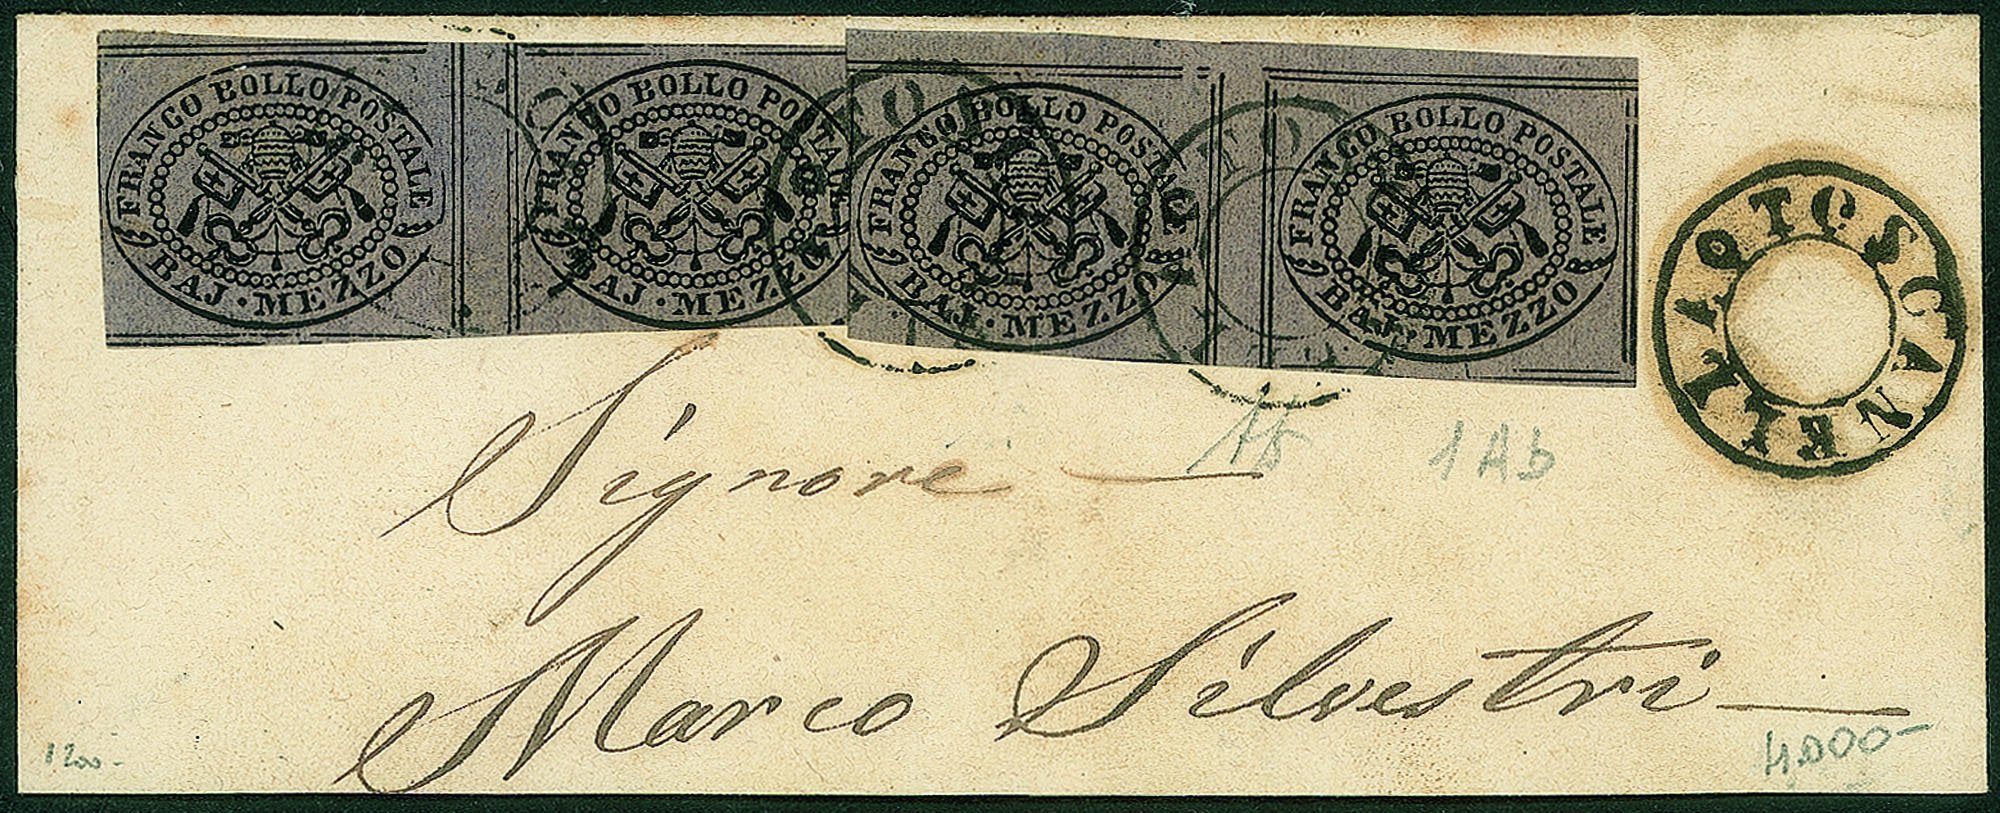 FRANCO BOLLO POSTALE
BAJ · MEZZO
FRANCO BOLLO POSTALE
BAJ · MEZZO
FRANCO BOLLO POSTALE
BAJ · MEZZO
FRANCO BOLLO POSTALE
BAJ · MEZZO
TOSCANELLA
Signore
1Ab
Marco Silvestri
1200-
4.000-